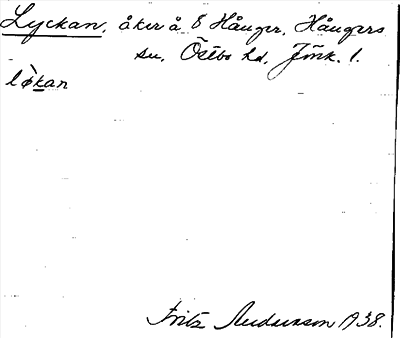 Lyckan, åker å S Hånger, Hångers
sn, Östbo hd, Jönk. l.
lø̀kan
Fritz Anderson 1938.